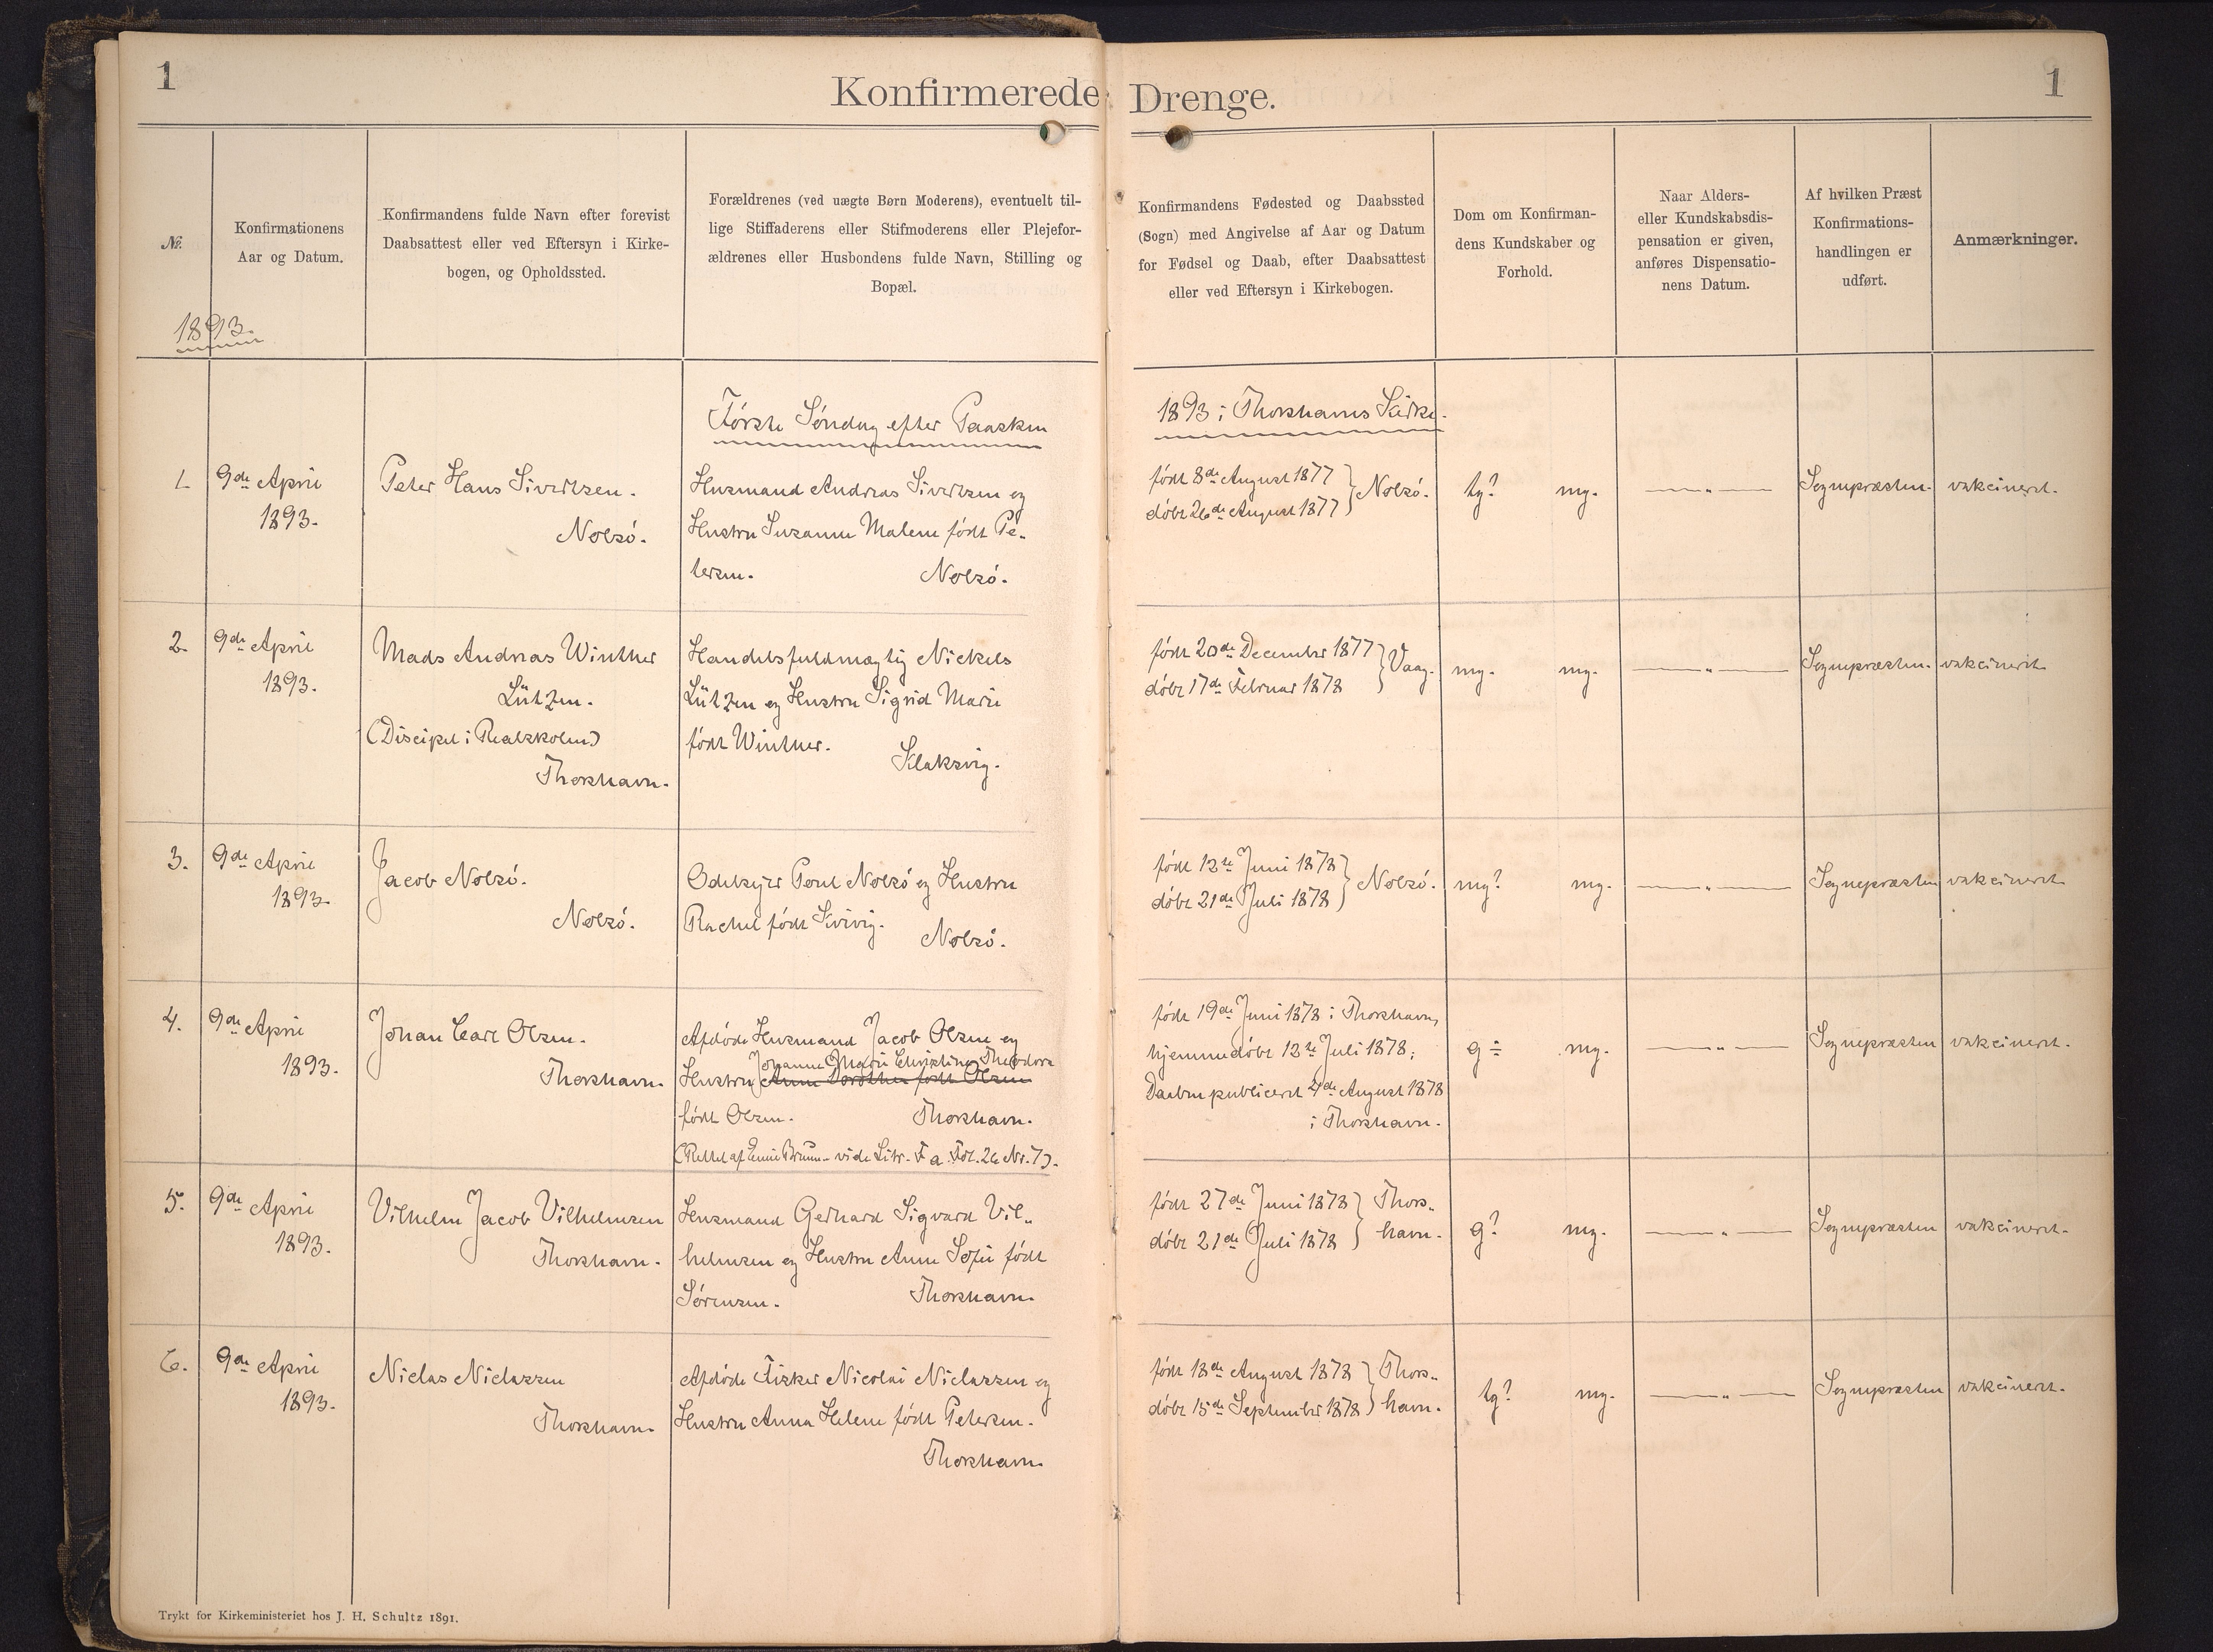 1
Konfirmerede Drenge.
1
№.
Konfirmationens
Aar og Datum.
Konfirmandens fulde Navn efter forevist
Daabsattest eller ved Eftersyn i Kirke-
bogen, og Opholdssted.
Forældrenes (ved uægte Børn Moderens), eventuelt til-
lige Stiffaderens eller Stifmoderens eller Plejefor-
ældrenes eller Husbondens fulde Navn, Stilling og
Bopæl.
Konfirmandens Fødested og Daabssted
(Sogn) med Angivelse af Aar og Datum
for Fødsel og Daab, efter Daabsattest
eller ved Eftersyn i Kirkebogen.
Dom om Konfirman-
dens Kundskaber og
Forhold.
Naar Alders-
eller Kundskabsdis-
pensation er given,
anføres Dispensatio-
nens Datum.
Af hvilken Præst
Konfirmations-
handlingen er
udført.
Anmærkninger.
1893.
Første Søndag efter Paasken
1893 i Thorshavns Kirke.
1.
9de April
1893.
Peter Hans Sivertsen.
Nolsö.
Husmand Andreas Sivertsen og
Hustru Susanne Malene født Pe-
tersen.
Nolsö.
født 8de August 1877
døbt 26de August 1877
Nolsö.
tg?
mg.
— „ —
Sognepræsten.
vakcineret.
2.
9de April
1893.
Mads Andreas Winther
Lützen.
(Discipel i Realskolen)
Thorshavn.
Handelsfuldmægtig Nickels
Lützen og Hustru Sigrid Marie
født Winther.
Klaksvig.
født 20de December 1877
døbt 17de Februar 1878
Vaag.
mg.
mg.
— „ —
Sognepræsten.
vakcineret
3.
9de April
1893.
Jacob Nolsö.
Nolsö.
Odelsejer Poul Nolsö og Hustru
Rachel født Kvivig.
Nolsö.
født 12te Juni 1878
døbt 21de Juli 1878
Nolsö.
mg?
mg.
— „ —
Sognepræsten
vakcineret
4.
9de April
1893.
Johan Carl Olsen.
Thorshavn.
Afdøde Husmand Jacob Olsen og
Johanne Marie Christine Theodora
Hustru Anne Dorothea født Olsen
født Olsen.
Thorshavn.
(Rettet af Emil Bruun - vide Litr. F a. Fol. 26 Nr. 7).
født 19de Juni 1878 i Thorshavn,
hjemmedøbt 12te Juli 1878;
Daaben publiceret 4de August 1878
i Thorshavn.
g ÷
mg.
— „ —
Sognepræsten
vakcineret.
5.
9de April
1893.
Vilhelm Jacob Vilhelmsen
Thorshavn.
Husmand Gerhard Sigvard Vil-
helmsen og Hustru Anne Sofie født
Sørensen.
Thorshavn.
født 27de Juni 1878
døbt 21de Juli 1878
Thors-
havn.
g?
mg.
— „ —
Sognepræsten
vakcineret.
6.
9de April
1893.
Niclas Niclassen
Thorshavn.
Afdøde Fisker Nicolai Niclassen og
Hustru Anna Helene født Petersen.
Thorshavn.
født 18de August 1878
døbt 15de September 1878
Thors-
havn.
tg?
mg.
— „ —
Sognepræsten
vakcineret.
Trykt for Kirkeministeriet hos J. H. Schultz 1891.